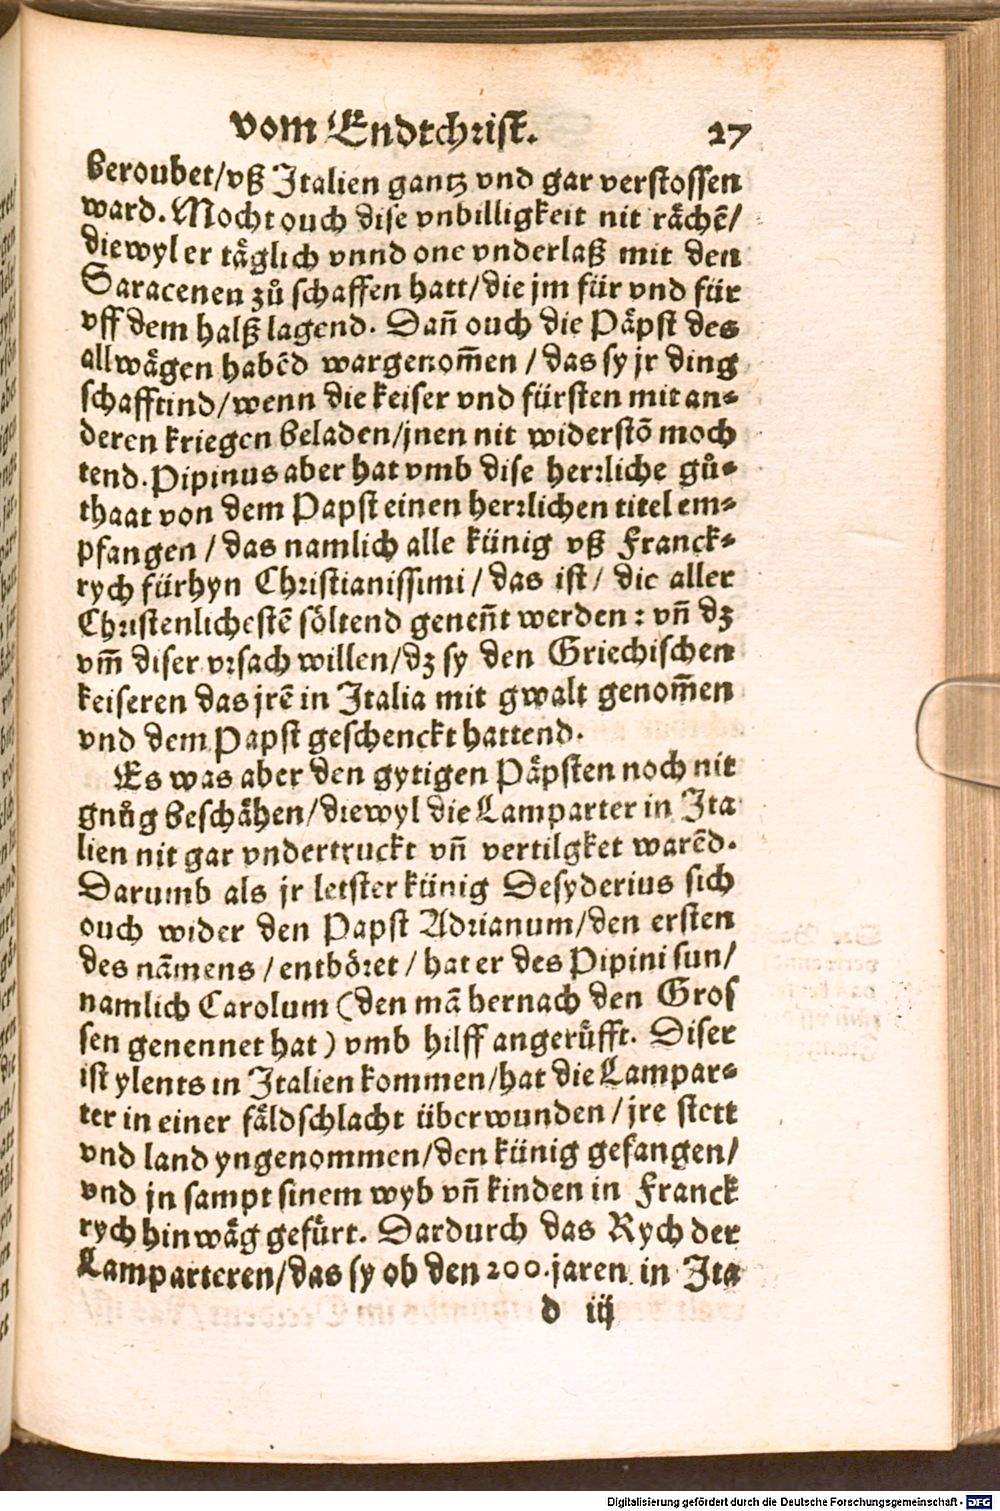 vom Endtchrist. 27
beroubet/vß Italien gantz vnd gar verstossen
ward. Mocht ouch dise vnbilligkeit nit rächē/
diewyl er täglich vnnd one vnderlaß mit den
Saracenen zů schaffen hatt/die jm für vnd für
vff dem halß lagend. Dañ ouch die Päpst des
allwägen habēd wargenom̃en / das sy jr ding
schafftind/wenn die keiser vnd fürsten mit an⸗
deren kriegen beladen/jnen nit widerstō moch
tend. Pipinus aber hat vmb dise herrliche gů⸗
thaat von dem Papst einen herrlichen titel em⸗
pfangen / das namlich alle künig vß Franck⸗
rych fürhyn Christianissimi / das ist / die aller
Christenlichestē söltend geneñt werden : vñ dz
vm̃ diser vrsach willen/dz sy den Griechischen
keiseren das jrē in Italia mit gwalt genom̃en
vnd dem Papst geschenckt hattend.
Es was aber den gytigen Päpsten noch nit
gnůg beschähen/diewyl die Lamparter in Ita
lien nit gar vndertruckt vñ vertilgket warēd.
Darumb als jr letster künig Desyderius sich
ouch wider den Papst Adrianum/den ersten
des nãmens / entböret / hat er des Pipini sun/
namlich Carolum (den mā hernach den Gros
sen genennet hat) vmb hilff angerüfft. Diser
ist ylents in Italien kommen/hat die Lampar⸗
ter in einer fäldschlacht überwunden / jre stett
vnd land yngenommen/den künig gefangen/
vnd jn sampt sinem wyb vñ kinden in Franck
rych hinwäg gefürt. Dardurch das Rych der
Lamparteren/das sy ob den 200. jaren in Ita
d iij
Digitalisierung gefördert durch die Deutsche Forschungsgemeinschaft - DFG